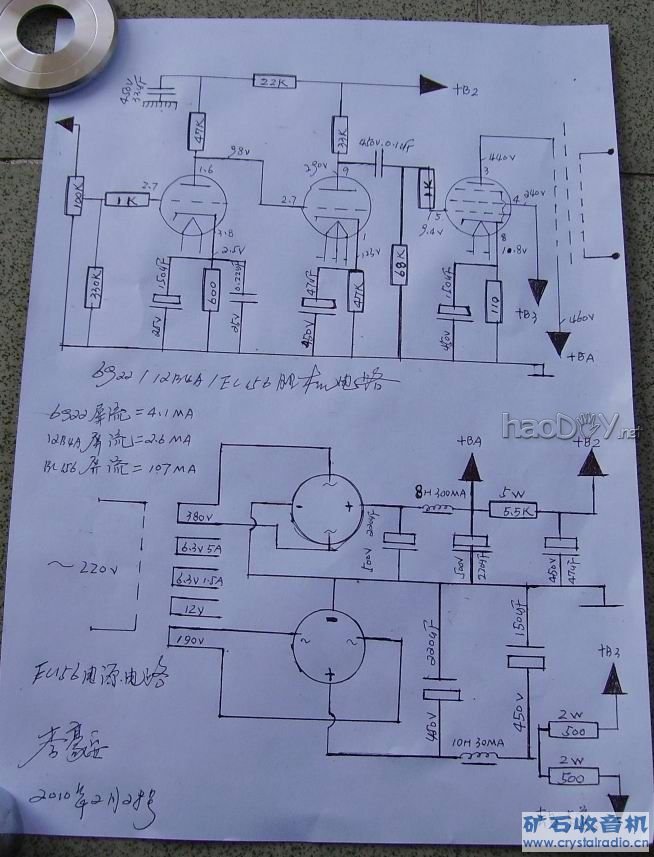 450V 33uF
22K
+B2
47K
33K
450V.0.1uF
98V
290V
9
440V
3
1.6
100K
1K
2.7
2.7
1K
5
9.4V
4
240V
3.8
2.5V
1
123V
8
10.8V
330K
150uF
25V
600
0.22uF
25V
47uF
450V
47K
68K
150uF
450V
110
+B3
460V
+BA
6922/12B4A/EL156胆机电路
6922屏流=4.1MA
12B4A屏流=2.6MA
EL156屏流=107MA
haoDIY.net
+BA
+B2
8H300MA
5W
5.5K
380V
6.3V5A
6.3V1.5A
12V
190V
~220V
500V
220uF
500V
220uF
450V
47uF
220uF
450V
150uF
450V
10H30MA
+B3
2W
500
2W
500
EL156电源电路
2010年2月28号
矿石收音机
www.crystalradio.cn